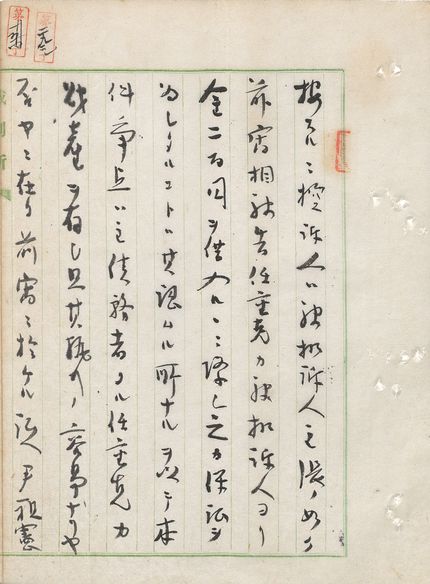 按スルニ控訴人ハ被控訴人主張ノ如ク
前審相被告任重克カ被控訴人ヨリ
金二百円ヲ借入ルヽニ際シ之カ保証ヲ
為シタルコトハ其認ムル所ナルヲ以テ本
件争点ハ主債務者タル任重克カ
財産ヲ有シ且其執行ノ容易ナリヤ
否ヤニ在リ前審ニ於ケル証人尹祖憲
裁判所